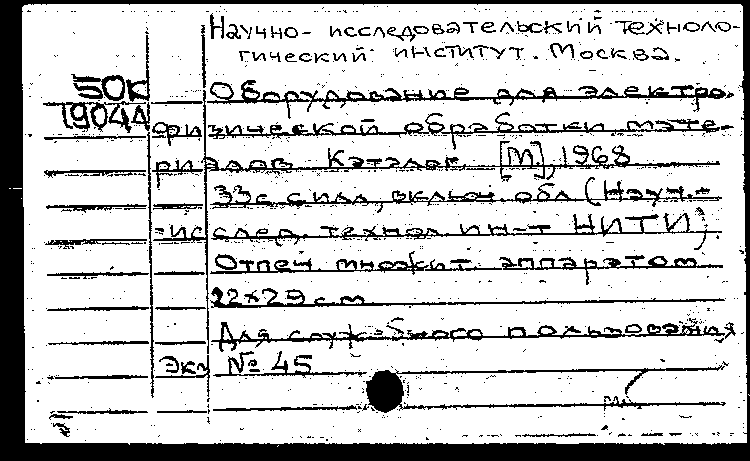 Научно-исследовательский техноло-
гический институт. Москва.
50К Оборудование для электро-
19044 физической обработки мате-
риалов Каталог. [М], 1968
33с с илл, включ. обл (Науч.-
-исслед. технол ин-т НИТИ);
Отпеч. множит. аппаратом
22x29 см
Для служебного пользования
Экз № 45